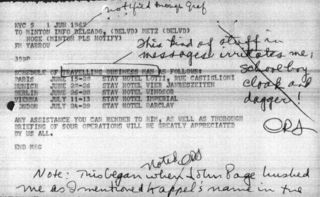 notified George Graf
NYC 5 1 JUN 1962
TO MINTON INFO BELGADO, (DELVD) METZ (DELVD)
HOGE (MINTON PLS NOTIFY)
FM YARROW
This kind of stuff in
messages irritates me;
school boy
cloak and
dagger!
ORS
SCHEDULE OF TRAVELLING BUSINESS MAN AS FOLLOWS:
PARIS 15-26 STAY HOTEL LOTTI, RUE CASTIGLIONI
MUNICH JUNE 27-28 STAY HOTEL VIER JAHRESZEITEN
BERLIN JUNE STAY HOTEL WINDSOR
VIENNA JULY 11-13 STAY HOTEL IMPERIAL
LONDON JULY 24-29 STAY HOTEL BARCLAY
ANY ASSISTANCE YOU CAN RENDER TO HIM, AS WELL AS THOROUGH
BRIEFING OF YOUR OPERATIONS WILL BE GREATLY APPRECIATED
BY US ALL.
END MSG
Noted ORS
Note: This began when John Page hushed
me as I mentioned Kappel's name in the